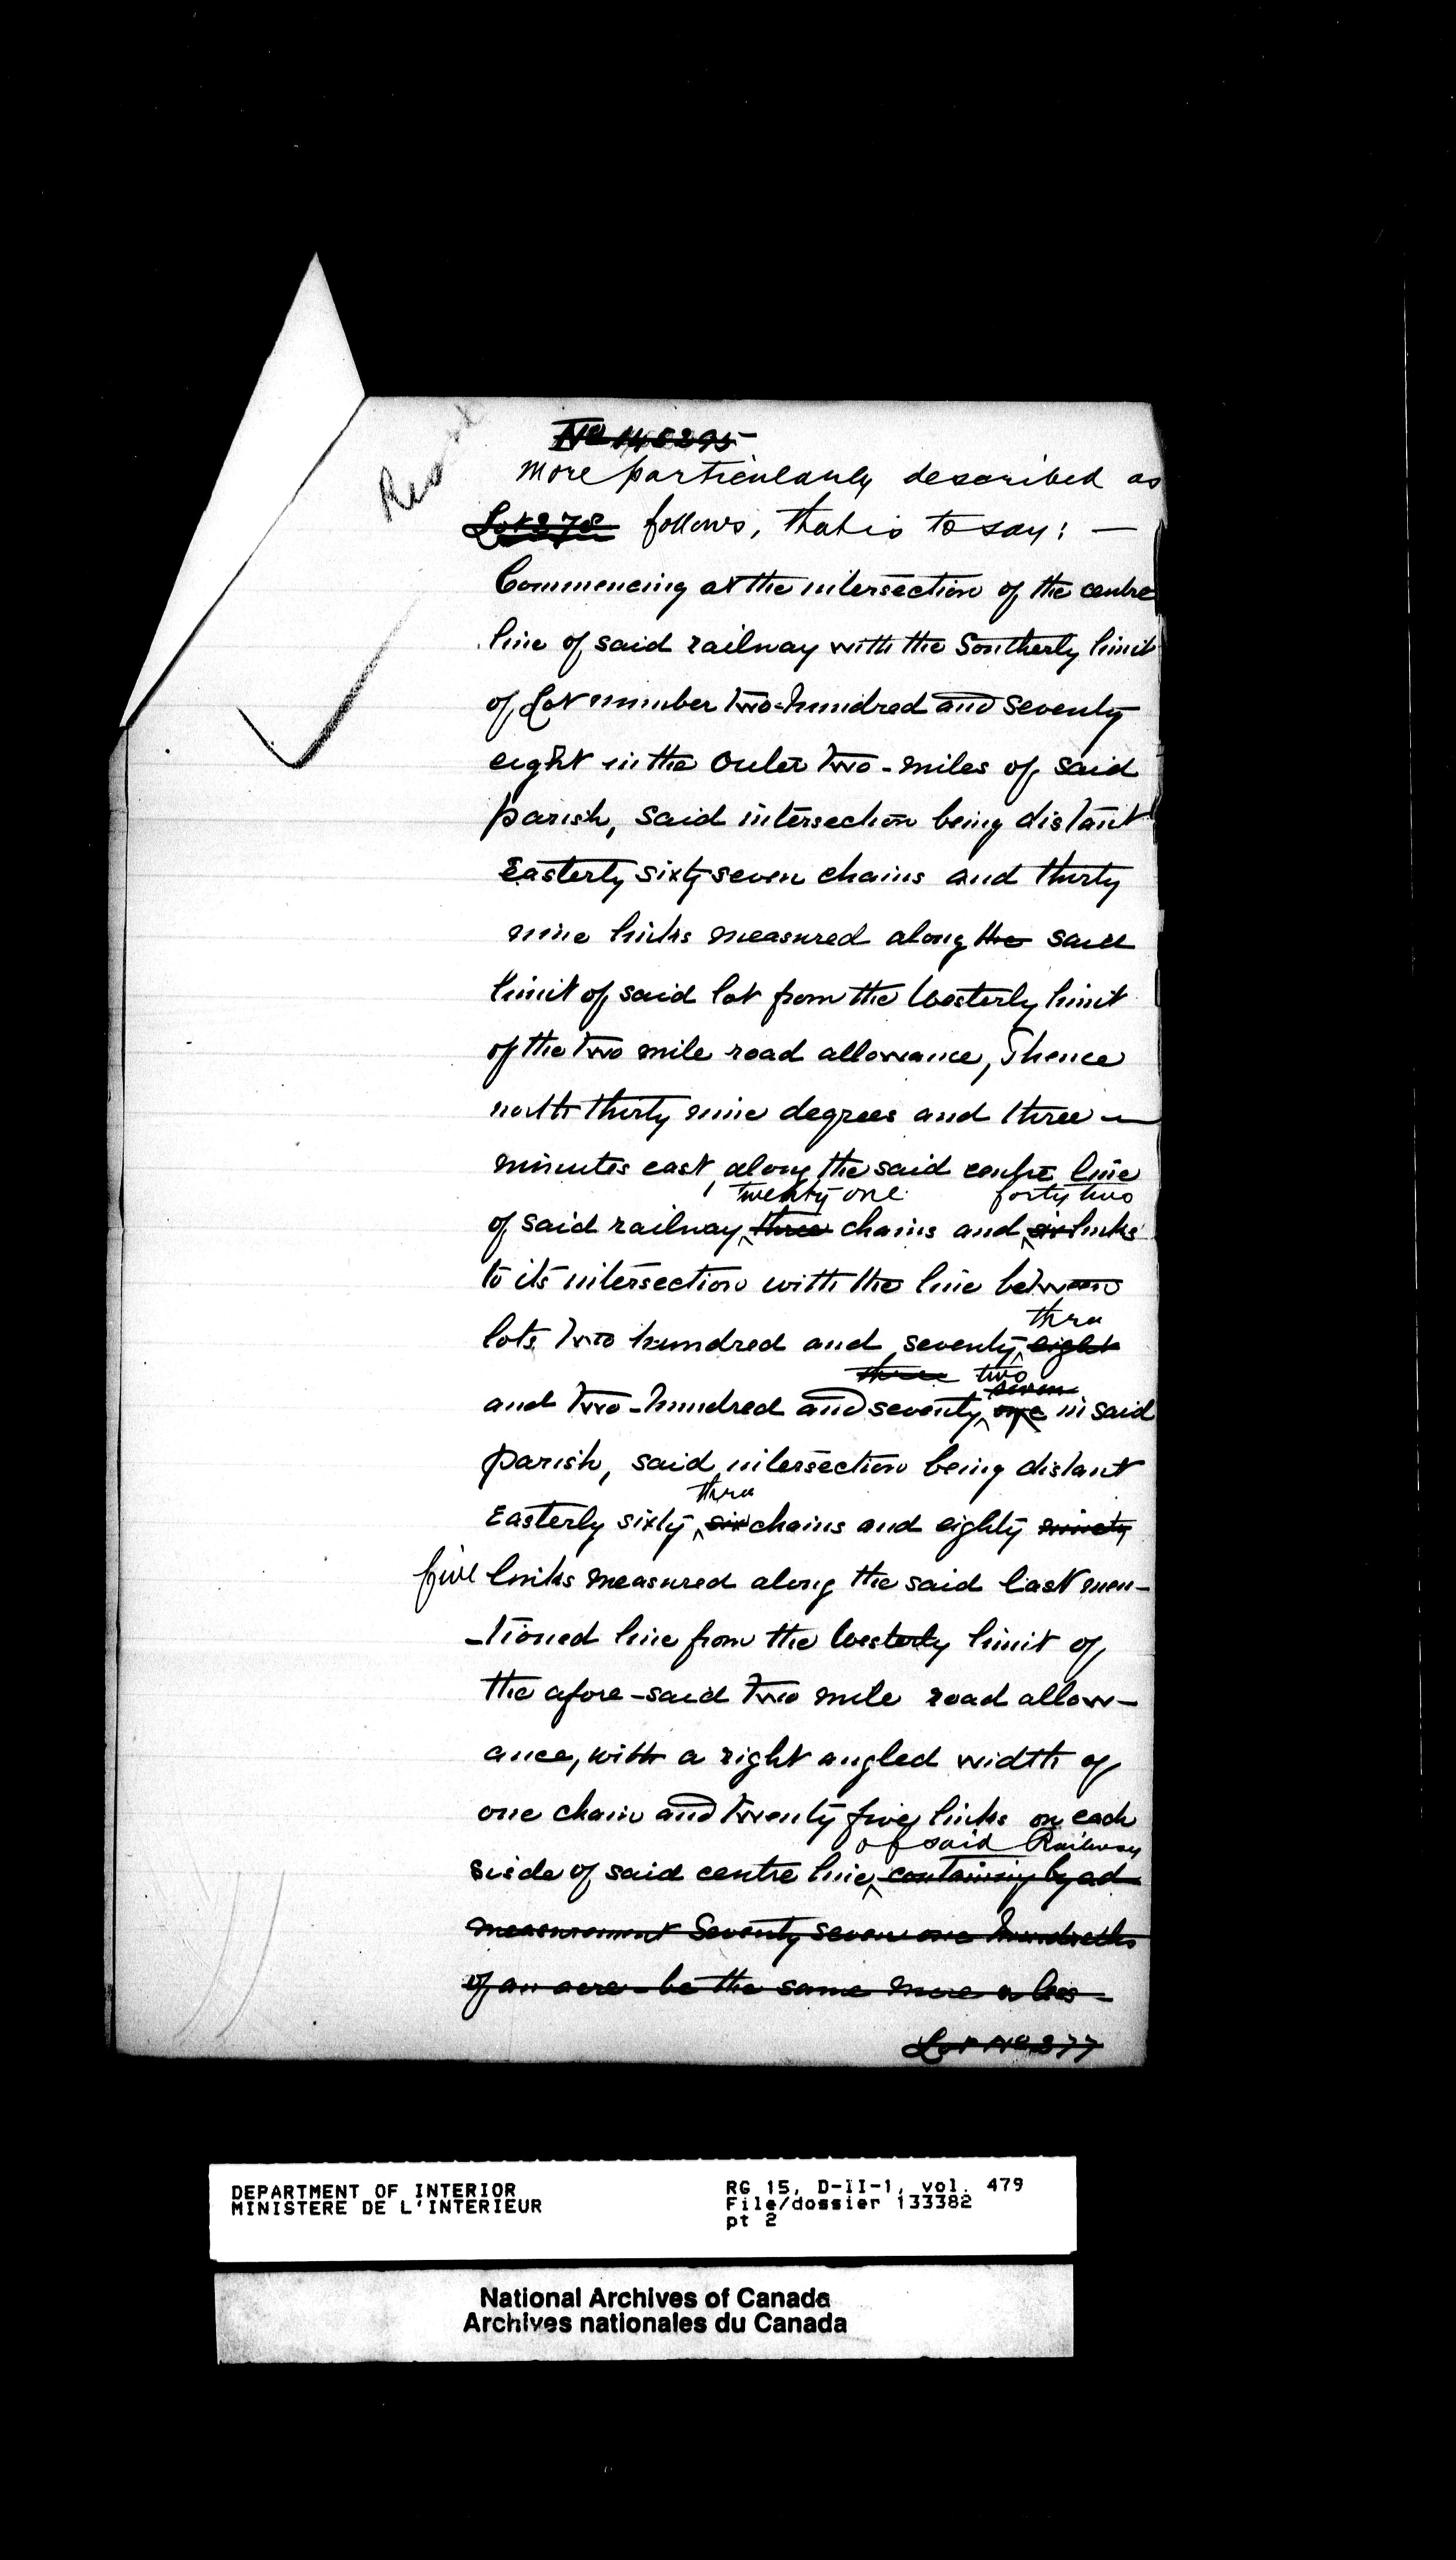 No 148295
more particularly described as
Lot 278 follows, that is to say: —
Commencing at the intersection of the centre
line of said railway with the Southerly limit
of Lot number two-hundred and seventy
eight in the outer two-miles of said
parish, said intersection being distant
Easterly sixty seven chains and thirty
nine links measured along the said
limit of said lot from the Westerly limit
of the two mile road allowance, Thence
north thirty nine degrees and three —
minutes east, along the said centre line
twenty one forty two
of said railway, three chains and six links
to its intersection with the line between
three
lots two hundred and seventy eight
three two
seven
and two-hundred and seventy one in said
parish, said intersection being distant
three
Easterly sixty six chains and eighty ninety
five links measured along the said last men-
-tioned line from the Westerly limit of
the afore-said two mile road allow-
ance, with a right angled width of
one chain and twenty five links on each
of said Railway
side of said centre line, containing by ad
measurement Seventy seven one hundredths
of an acre - be the same more or less -
Lot No 277
DEPARTMENT OF INTERIOR
MINISTERE DE L'INTERIEUR
RG 15, D-II-1, vol. 479
File/dossier 133382
pt 2
National Archives of Canada
Archives nationales du Canada